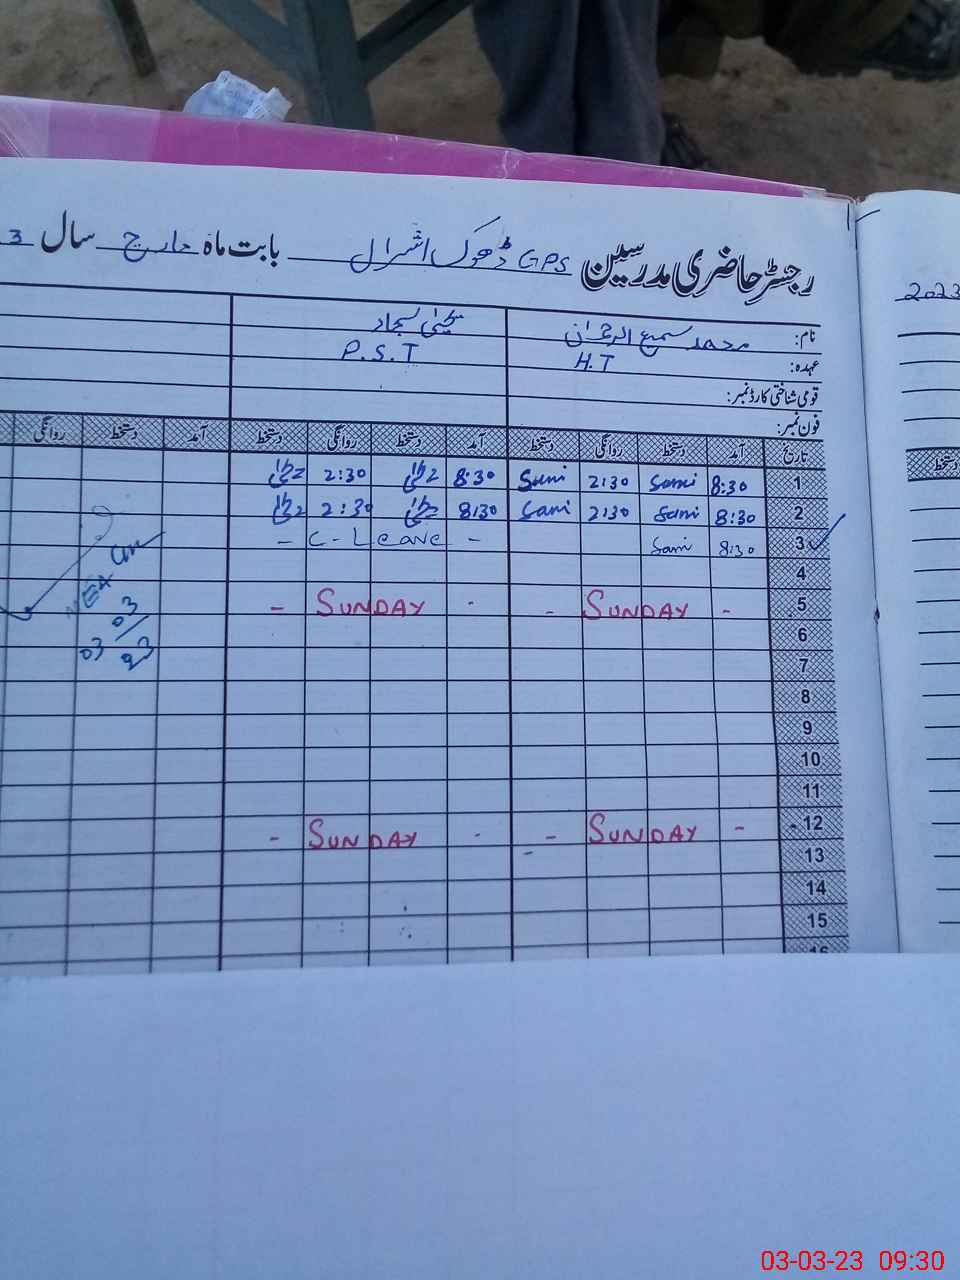 رجسٹر حاضری مدرسین GPS ڈھوک اشرال بابت ماہ مارچ سال 3
2023
نام: محمد سمیع الرحمٰن یحییٰ سجاد
عہدہ: H.T P.S.T
قومی شناختی کارڈ نمبر:
فون نمبر:
تاریخ آمد دستخط روانگی دستخط آمد دستخط روانگی دستخط آمد دستخط روانگی
دستخط
1 8:30 Sami 2:30 Sami 8:30 یحییٰ 2:30 یحییٰ
2 8:30 Sami 2:30 Sami 8:30 یحییٰ 2:30 یحییٰ
3 8:30 Sami - C-Leave -
4
5 - SUNDAY - - SUNDAY -
6
7
8
9
10
11
12 - SUNDAY - - SUNDAY -
13
14
15
16
03
03
23
03-03-23 09:30